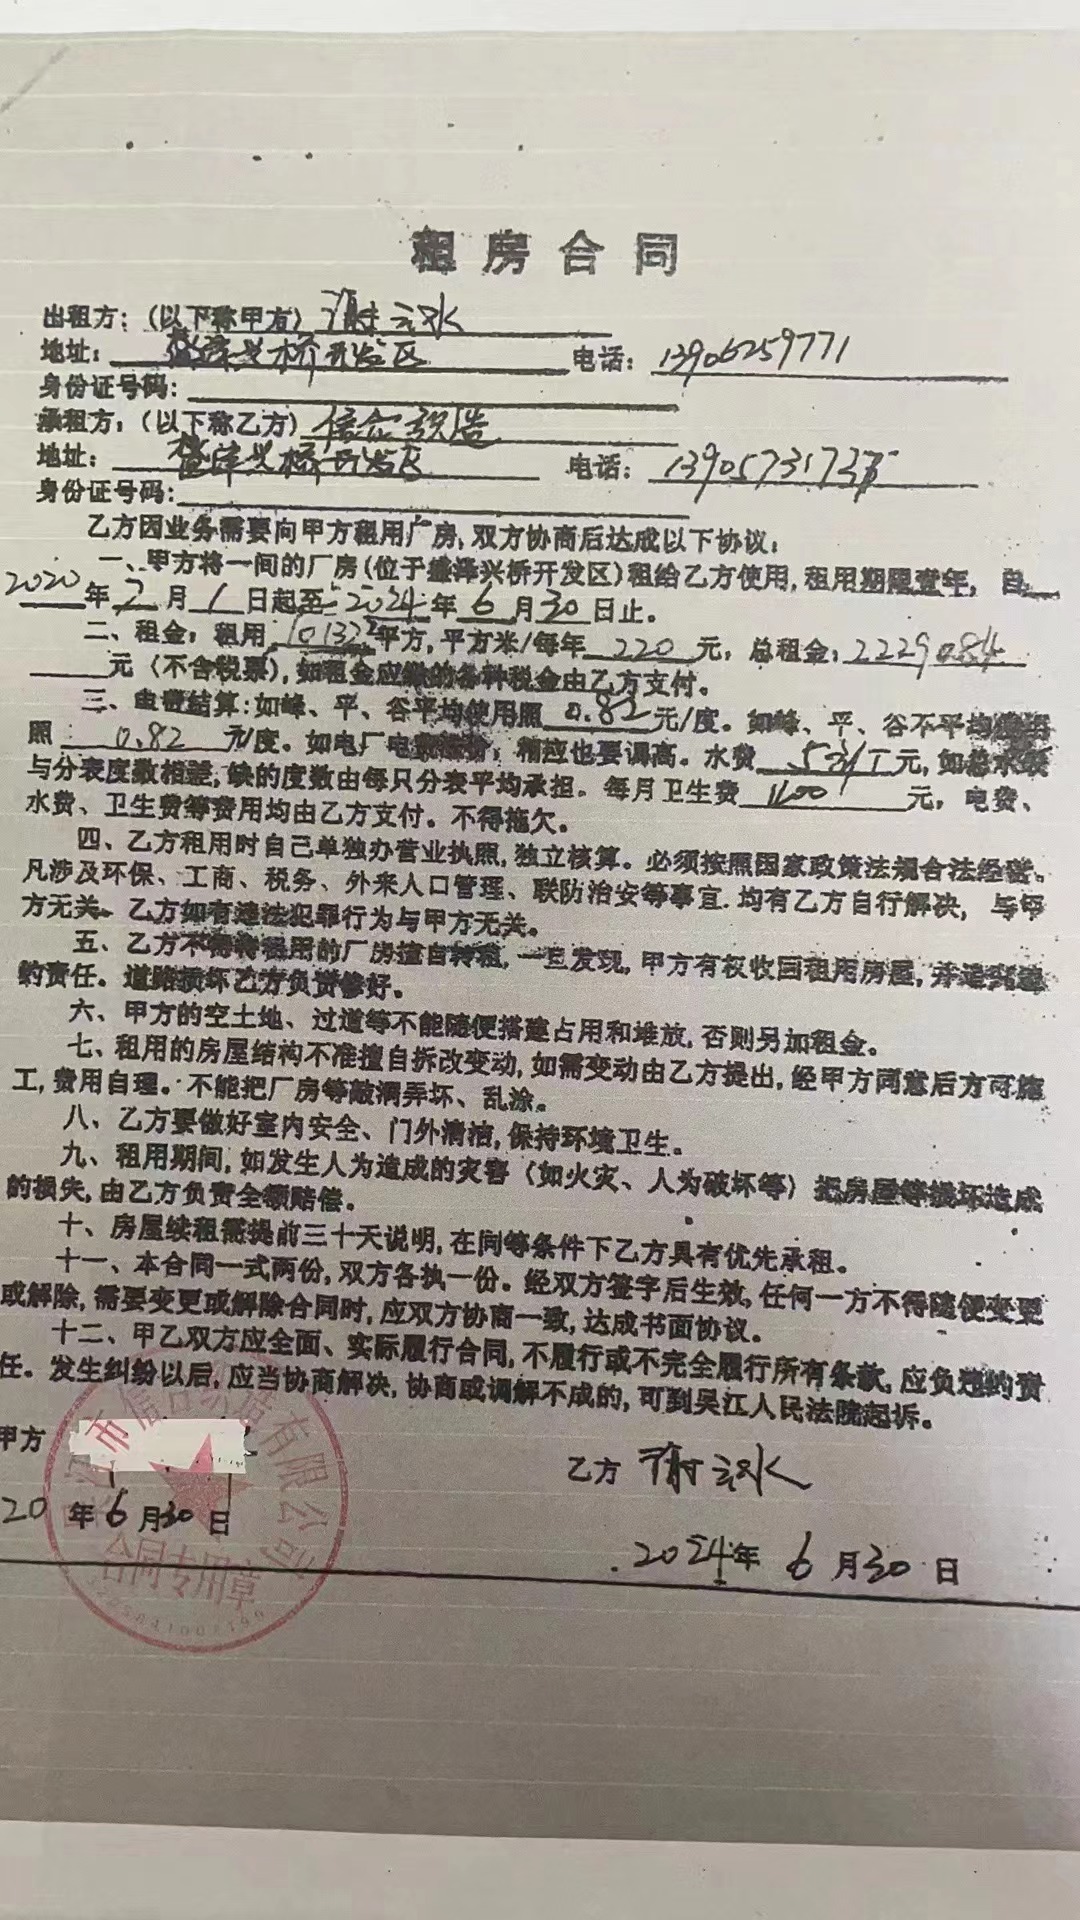 租房合同
出租方：（以下称甲方）
地址： 盛泽兴桥开发区 电话：13906259771
身份证号码：
承租方：（以下称乙方）信合
地址： 盛泽兴桥开发区 电话：139057317
身份证号码：
乙方因业务需要向甲方租用厂房，双方协商后达成以下协议：
一、甲方将一间的厂房（位于盛泽兴桥开发区）租给乙方使用，租用期限壹年， 自
2020年2月1日起至2024年6月30日止。
二、租金：租用 10132.2 平方，平方米/每年 220 元，总租金：2229084
元（不含税票），如租金应缴的各种税金由乙方支付。
三、电费结算：如峰、平、谷平均使用照 0.82 元/度。如峰、平、谷不平均
照 0.82 元/度。如电厂电费 ，相应也要调高。水费 元，如总水表
与分表度数相差，缺的度数由每只分表平均承担。每月卫生费 元，电费、
水费、卫生费等费用均由乙方支付。不得拖欠。
四、乙方租用时自己单独办营业执照，独立核算。必须按照国家政策法规合法经营。
凡涉及环保、工商、税务、外来人口管理、联防治安等事宜．均有乙方自行解决， 与甲
方无关。乙方如有违法犯罪行为与甲方无关。
五、乙方不得将租用的厂房擅自转租，一旦发现，甲方有权收回租用房屋，并追究违
约责任。道路损坏乙方负责修好。
六、甲方的空土地、过道等不能随便搭建占用和堆放，否则另加租金。
七、租用的房屋结构不准擅自拆改变动，如需变动由乙方提出，经甲方同意后方可施
工，费用自理。不能把厂房等敲漏弄坏、乱涂。
八、乙方要做好室内安全、门外清洁，保持环境卫生。
九、租用期间，如发生人为造成的灾害（如火灾、人为破坏等）把房屋等损坏造成
的损失，由乙方负责全额赔偿。
十、房屋续租需提前三十天说明，在同等条件下乙方具有优先承租。
十一、本合同一式两份，双方各执一份。经双方签字后生效，任何一方不得随便变更
或解除，需要变更或解除合同时，应双方协商一致，达成书面协议。
十二、甲乙双方应全面、实际履行合同，不履行或不完全履行所有条款，应负违约责
任。发生纠纷以后，应当协商解决，协商或调解不成的，可到吴江人民法院起诉。
甲方 乙方
20 年6月30日
2024年 6月30日
市信合 有限公司
合同专用章